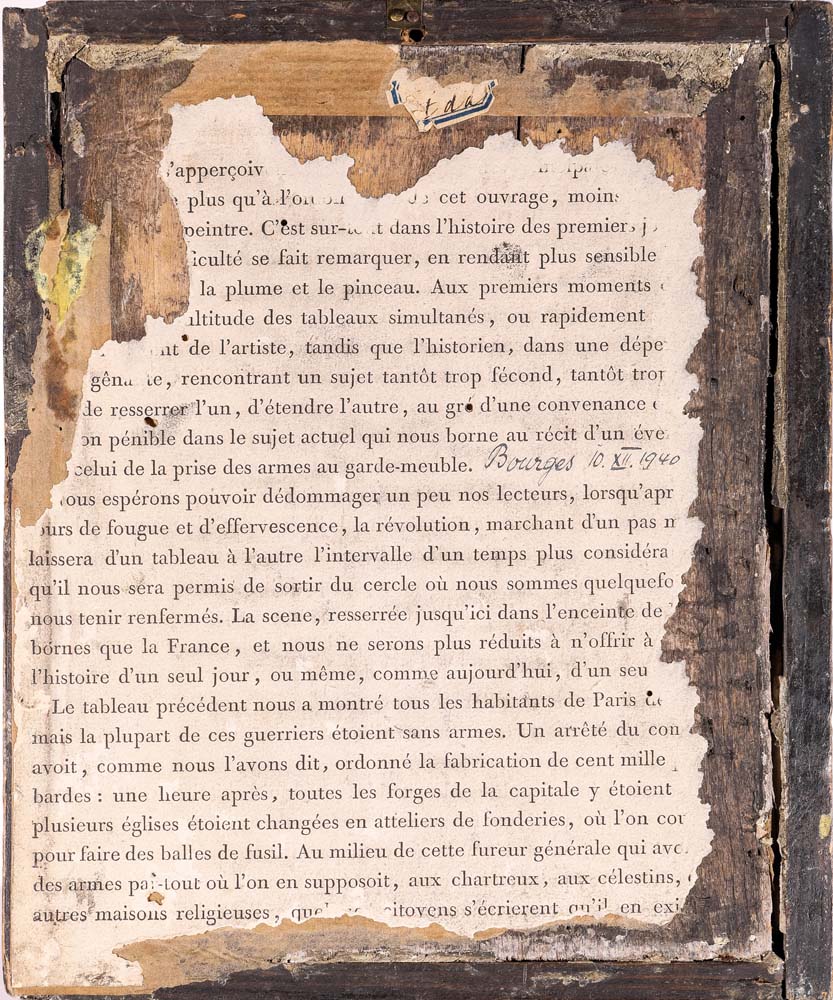 t da
'apperçoiv
plus qu'à l'on cet ouvrage, moins
peintre. C'est sur- t dans l'histoire des premiers j
iculté se fait remarquer, en rendant plus sensible
la plume et le pinceau. Aux premiers moments
ltitude des tableaux simultanés, ou rapidement
nt de l'artiste, tandis que l'historien, dans une dépe
gên te, rencontrant un sujet tantôt trop fécond, tantôt trop
de resserrer l'un, d'étendre l'autre, au gré d'une convenance
on pénible dans le sujet actuel qui nous borne au récit d'un éve
celui de la prise des armes au garde-meuble. Bourges 10. XII. 1940
ous espérons pouvoir dédommager un peu nos lecteurs, lorsqu'apr
ours de fougue et d'effervescence, la révolution, marchant d'un pas
laissera d'un tableau à l'autre l'intervalle d'un temps plus considéra
qu'il nous sera permis de sortir du cercle où nous sommes quelquefo
nous tenir renfermés. La scene, resserrée jusqu'ici dans l'enceinte de
bornes que la France, et nous ne serons plus réduits à n'offrir à
l'histoire d'un seul jour, ou même, comme aujourd'hui, d'un seu
Le tableau précédent nous a montré tous les habitants de Paris
mais la plupart de ces guerriers étoient sans armes. Un arrêté du com
avoit, comme nous l'avons dit, ordonné la fabrication de cent mille
bardes : une heure après, toutes les forges de la capitale y étoient
plusieurs églises étoient changées en atteliers de fonderies, où l'on cou
pour faire des balles de fusil. Au milieu de cette fureur générale qui avo
des armes par-tout où l'on en supposoit, aux chartreux, aux célestins,
autres maisons religieuses, que citoyens s'écrierent qu'il en exi